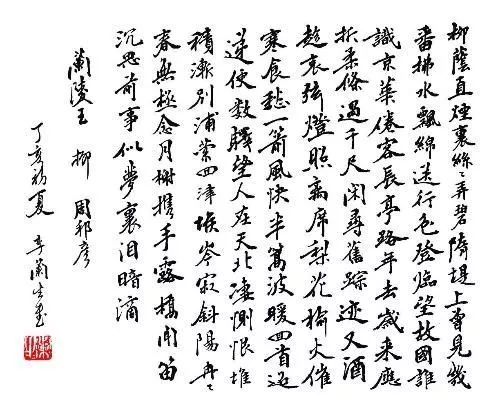 柳蔭直煙裏絲〻弄碧隋堤上曾見幾
番拂水飄綿送行色登臨望故國誰
識京華倦客長亭路年去歲來應
折柔條過千尺閑尋舊踪迹又酒
趁哀弦燈照離席梨花榆火催
寒食愁一箭風快半篙波暖回首迢
遞便數驛望人在天北悽惻恨堆
積漸別浦縈回津堠岑寂斜陽冉〻
春無極念月榭攜手露橋聞笛
沉思前事似夢裏淚暗滴
蘭陵王 柳 周邦彥
丁亥初夏